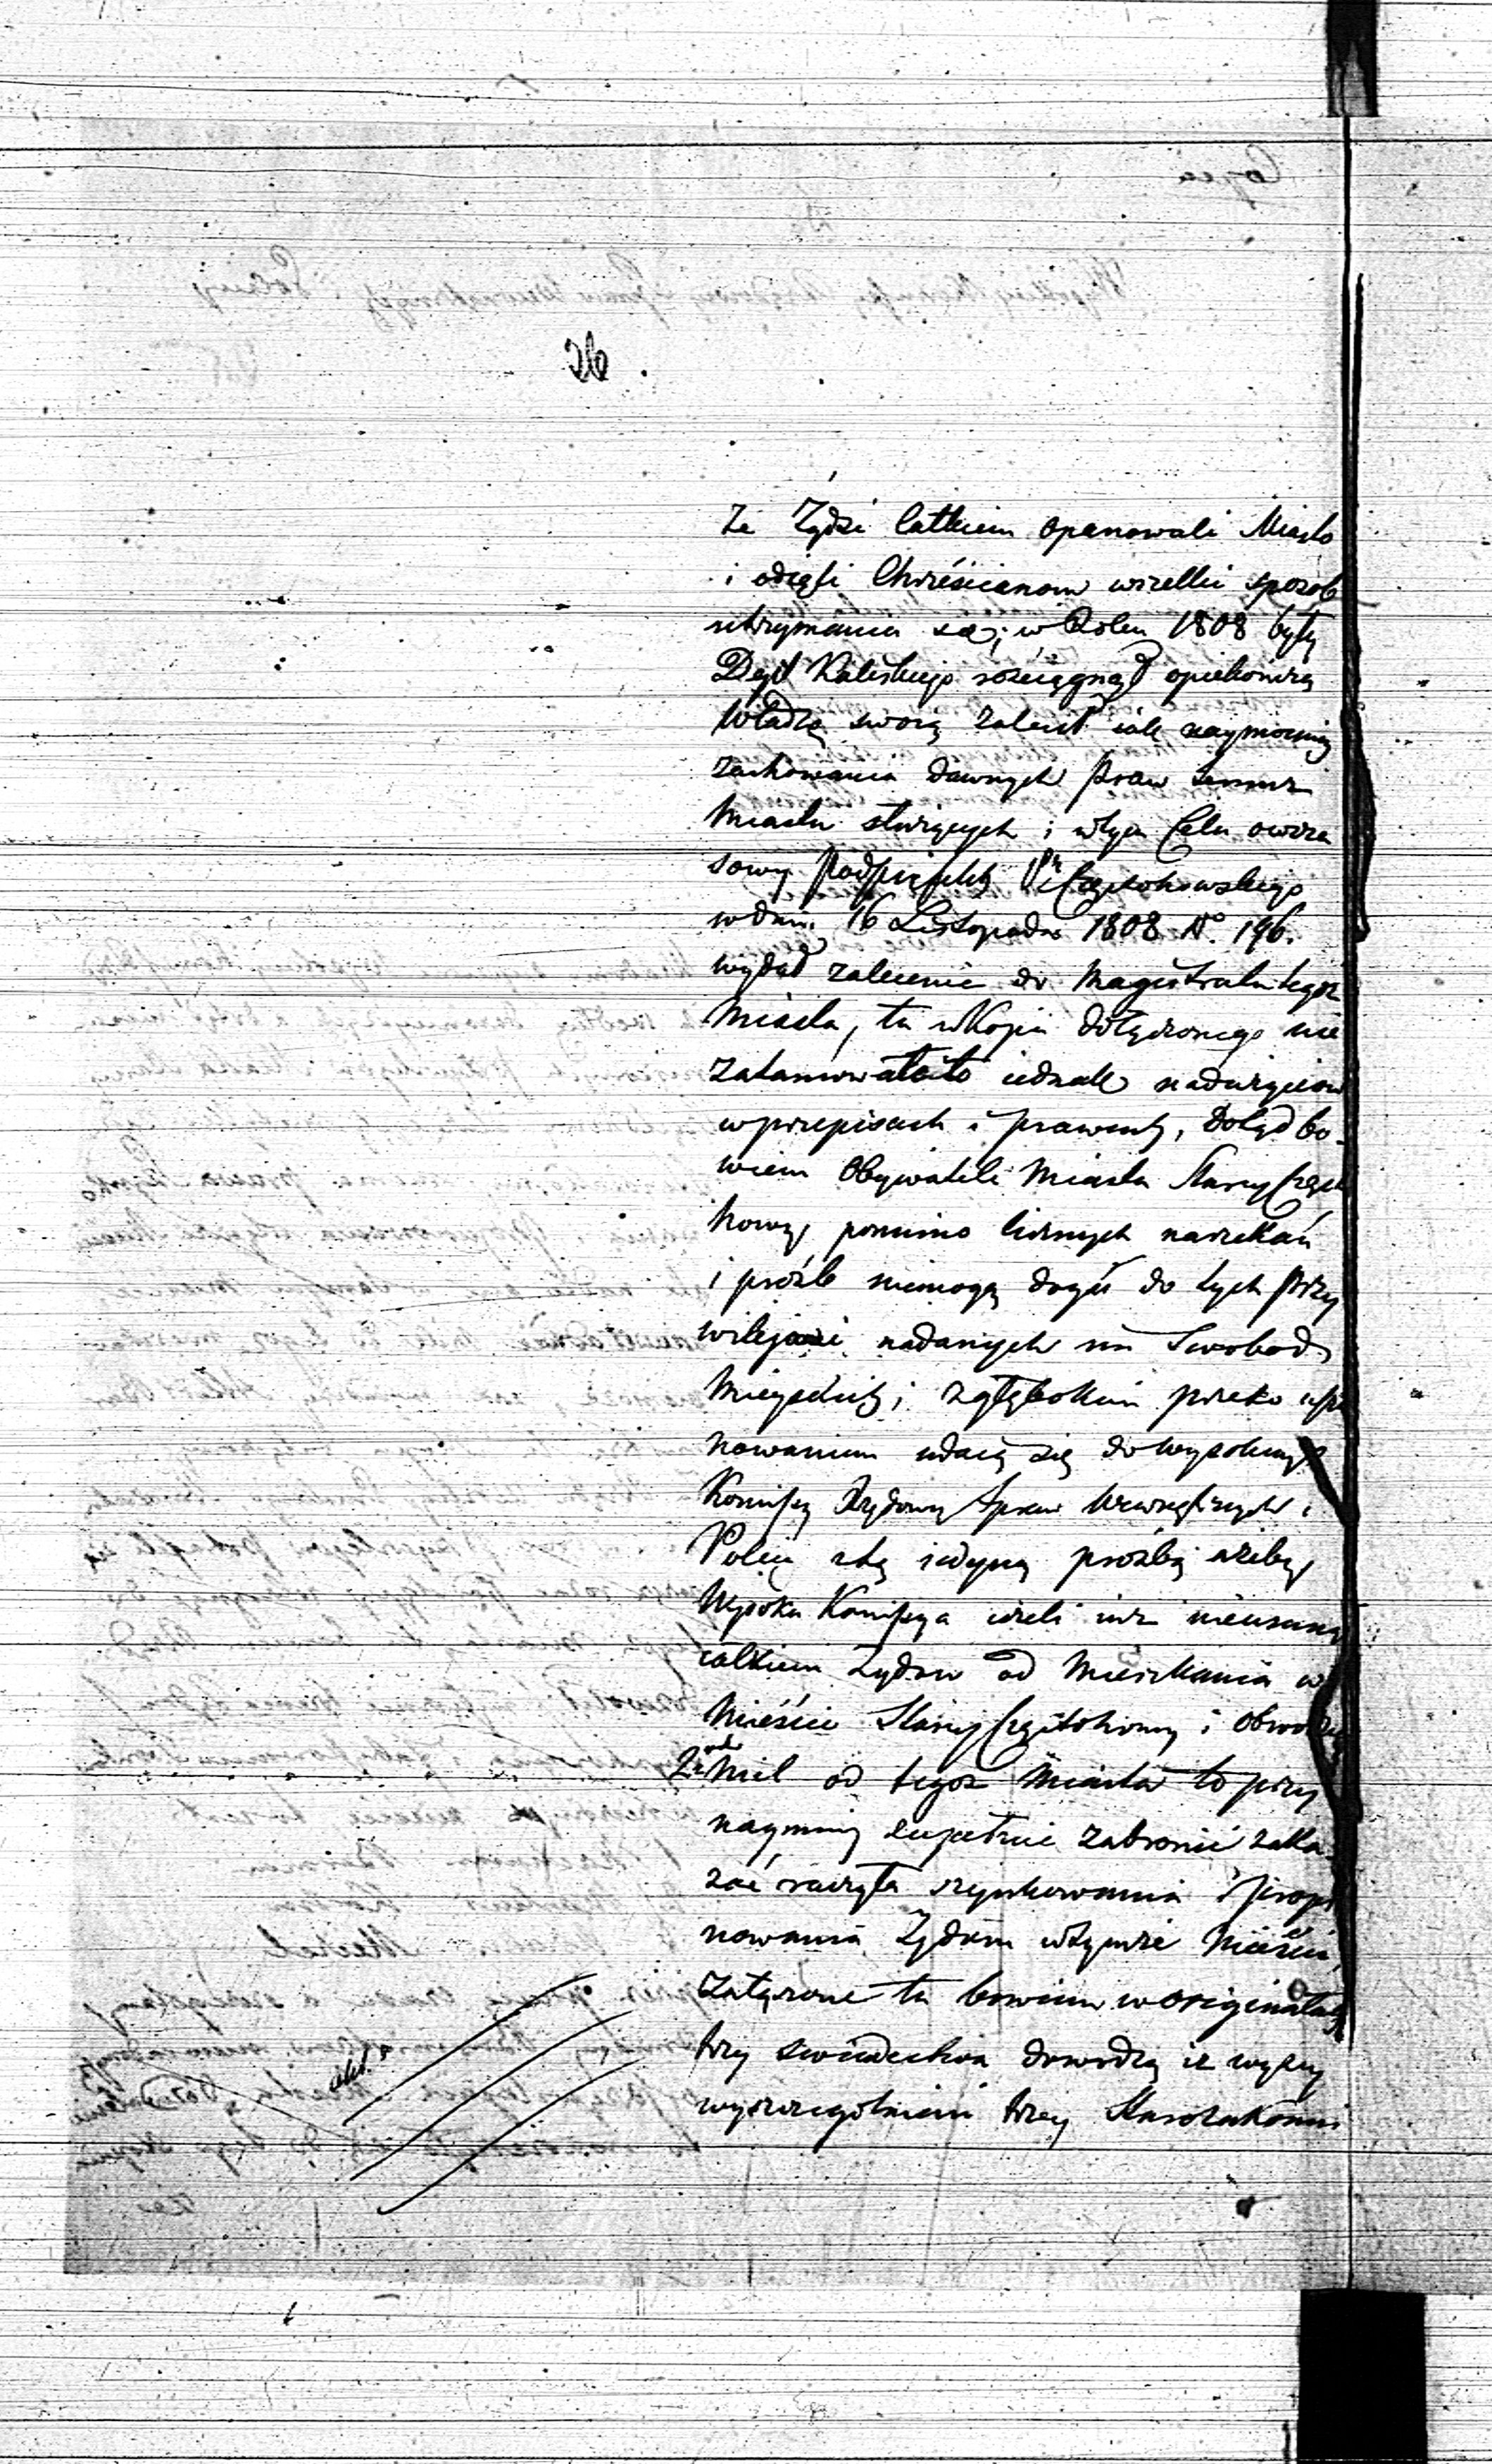 26.
że Żydzi całkiem opanowali Miasto
i odięli Chrześcianom wszelki sposob
utrzymania się; w Roku 1808 były
Dept Kaliskiego rościągnął opiekończą
Władzę swoią zalecił iak naymocniey
zachowania dawnych praw temuż
Miastu służących i wtym Celu owcza
sowy Podprefekt Ptu Częstochowskiego
w dniu 16 Listopada 1808 No. 196.
wydał zalecenie do Magistratu tegoż
Miasta, tu w Kopii dołączonego nie
zatamowało to iednak nadużyciow
w przepisach i prawach, dotąd bo-
wiem Obywatele Miasta Starey Częst
howy, pomimo licznych narzekań
i próźb niemogą doyść do tych przy
wilejami nadanych im Swobod
Mieyskich; z głębokim przeto usza
nowaniem udaią się do Wysokiey
Komissyi Rządowey Spraw Wewnętrznych i
Policyi z tą iedyną proźbą ażeby
Wysoka Komissya ieżeli iuż nieusunę
całkiem Żydow od Mieszkania w
Mieście Starey Częstochowy i obwodzie
2ch Mil od tegoż Miasta to przy
naymniey zupełnie zabronić zaka-
zać raczyła szynkowania i propi
nowania Żydom wtymże Mieście,
Załączone tu bowiem w originałach
trzy swiadectwa dowodzą iż wyżey
wyszczegolnieni trzey Starozakonni